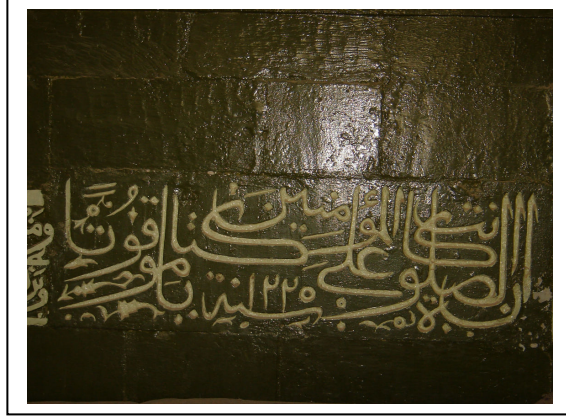 ان الصلوة كانت على المؤمنين كتابا موقوتا سنة ١٢٢٥